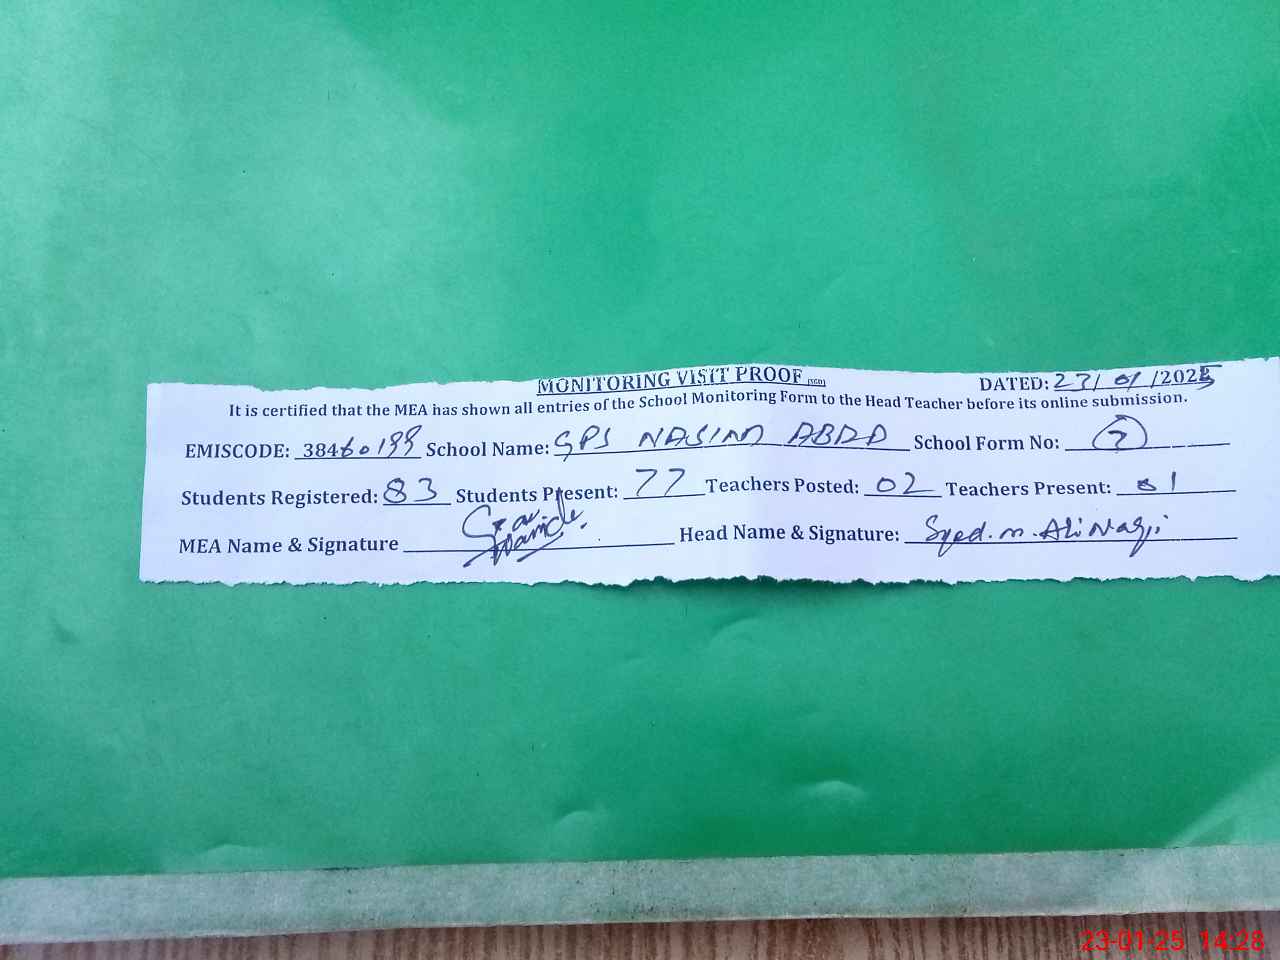 MONITORING VISIT PROOF
DATED: 23/01/2025
It is certified that the MEA has shown all entries of the School Monitoring Form to the Head Teacher before its online submission.
EMISCODE: 38460199 School Name: GPS NASIM ABAD School Form No: 7
Students Registered: 83 Students Present: 77 Teachers Posted: 02 Teachers Present: 01
MEA Name & Signature Head Name & Signature: Syed. M. Ali Naqi
23-01-25 14:28